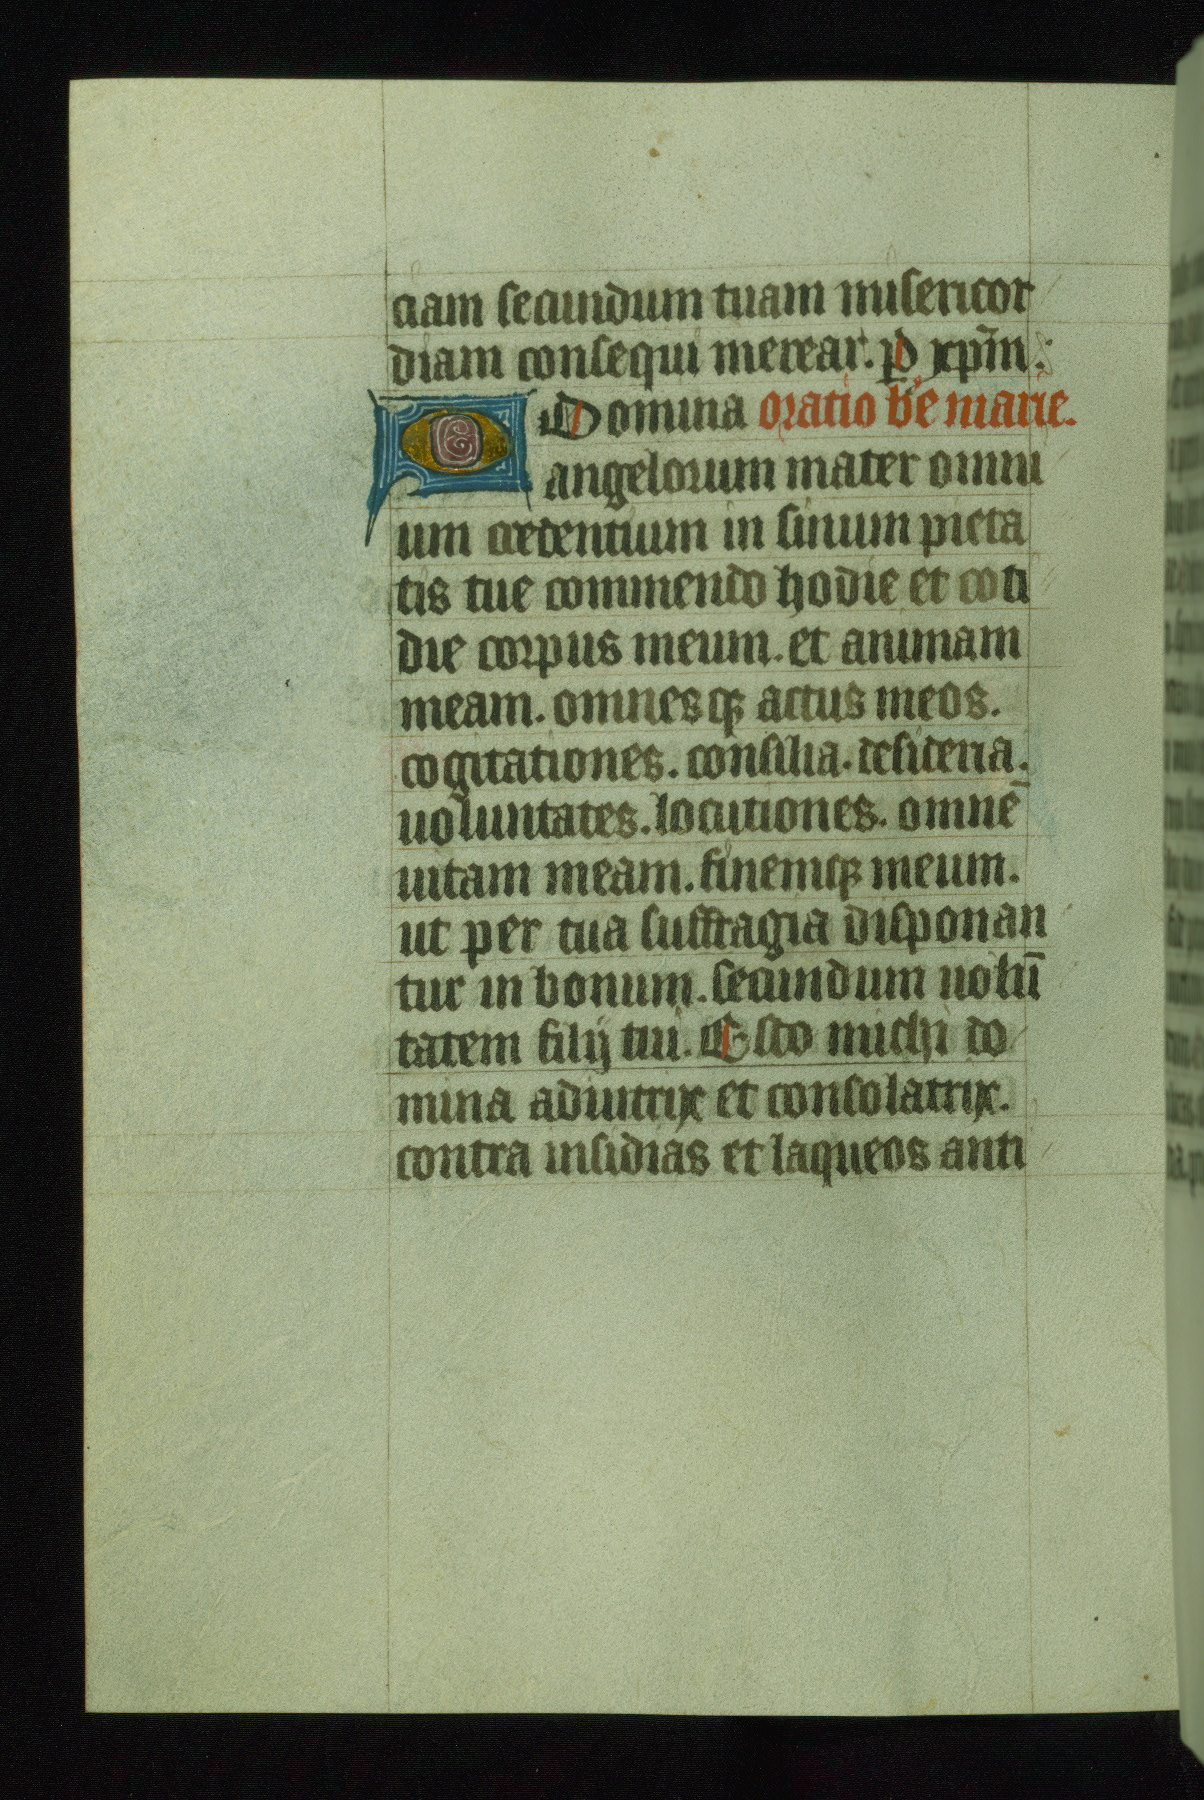 ciam secundum tuam misericor
diam consequi merear. p xp̄m.
O Domina oratio be᷎ marie.
angelorum mater omni
um credentium in sinum pieta
tis tue commendo hodie et coti
die corpus meum. et animam
meam. omnesqꝫ actus meos.
cogitationes. consilia. desideria.
uoluntates. locutiones. omnē
uitam meam. finemqꝫ meum.
ut per tua suffragia disponan
tur in bonum. secundum uolū
tatem filij tui. Esto michi do
mina adiutrix et consolatrix.
contra insidias et laqueos anti